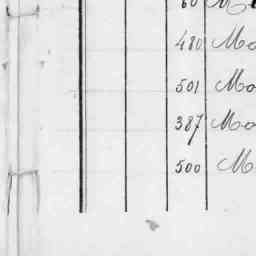 480 Mo
501 Mo
387 Mo
500 M